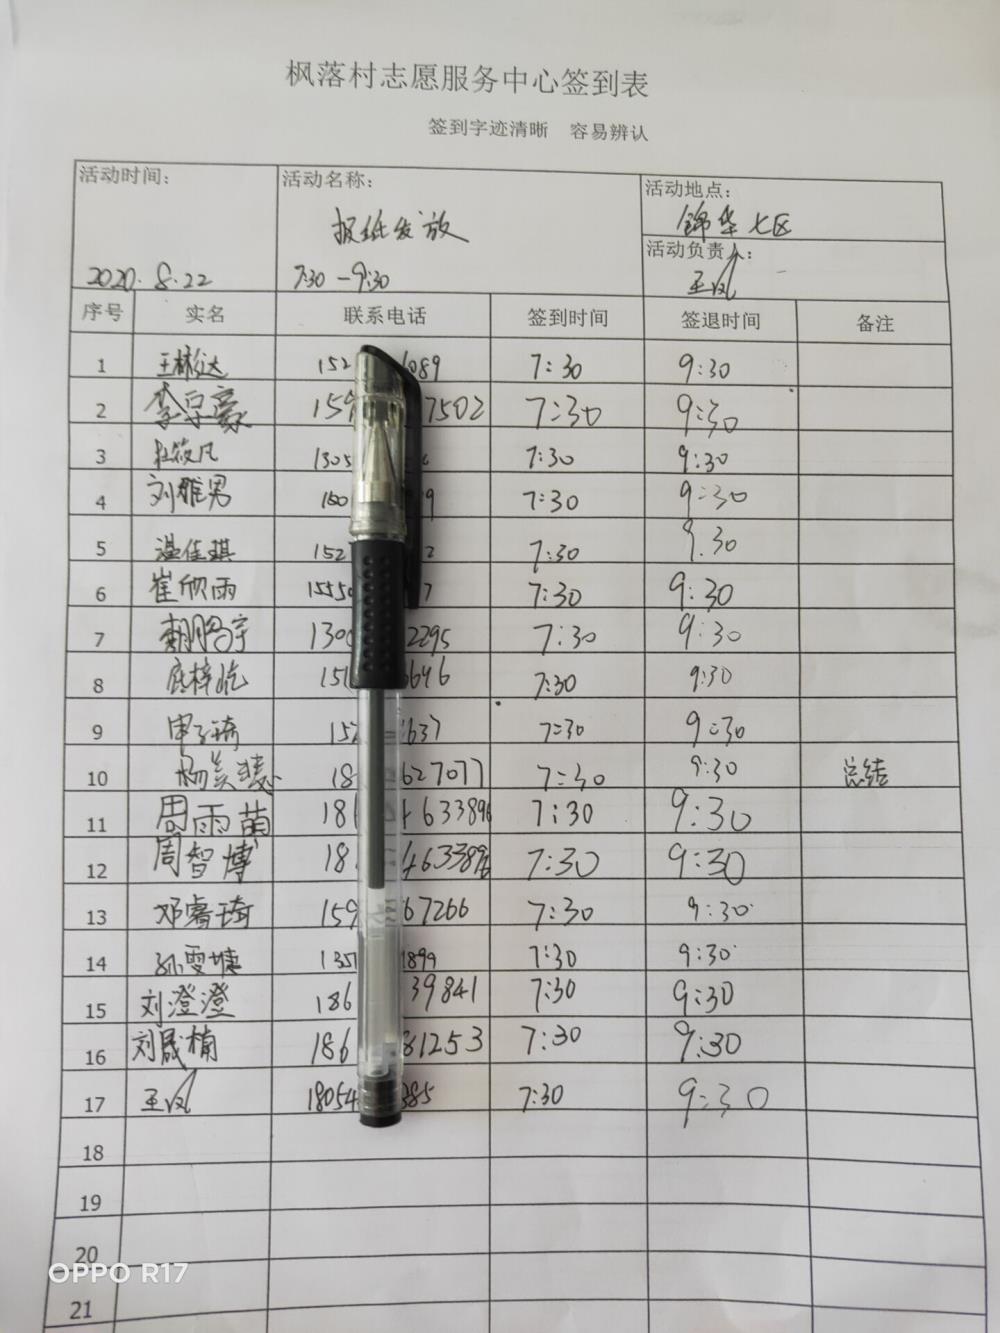 枫落村志愿服务中心签到表
签到字迹清晰 容易辨认
活动时间: 活动名称: 活动地点:
报纸发放 锦华七区
活动负责人:
2020.8.22 7:30-9:30 王凤
序号 实名 联系电话 签到时间 签退时间 备注
1 王彬达 152 089 7:30 9:30
2 李昊豪 159 7502 7:30 9:30
3 杜筱凡 1305 7:30 9:30
4 刘雅男 150 9 7:30 9:30
5 温佳琪 152 2 7:30 9.30
6 崔欣雨 15550 7 7:30 9:30
7 鹏宇 130 2295 7:30 9:30
8 梓屹 151 6646 7:30 9:30
9 申子琦 152 637 7:30 9:30
10 杨美 18 627077 7:30 9:30 总结
11 周雨萌 186 4633896 7:30 9:30
12 周智博 18 4633896 7:30 9:30
13 邓睿琦 159 67266 7:30 9:30
14 孙雯婕 135 1899 7:30 9:30
15 刘澄澄 186 39841 7:30 9:30
16 刘晟楠 186 81253 7:30 9:30
17 王凤 18054 385 7:30 9:30
18
19
20
21
OPPO R17